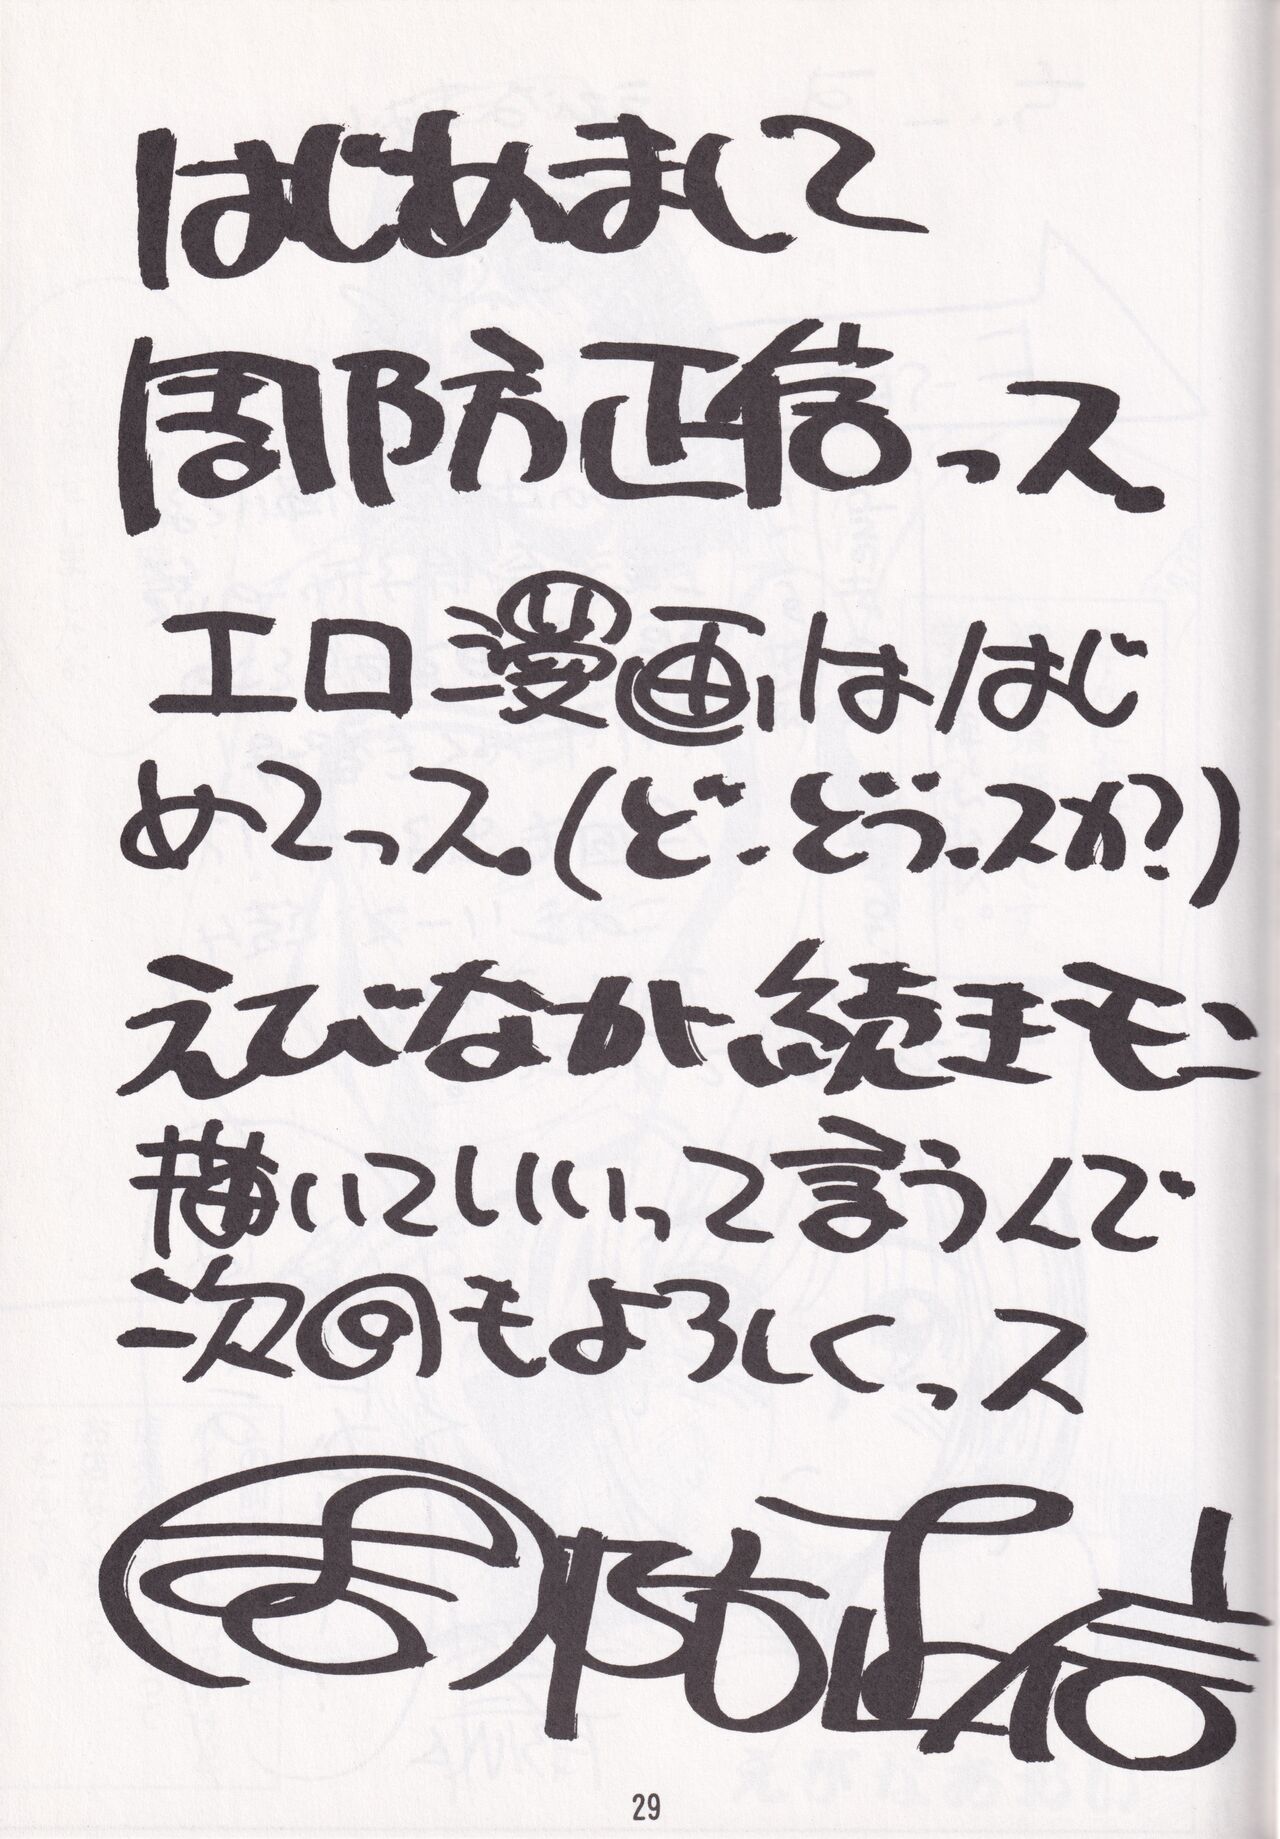 はじめまして
周防正信っス
エロ漫画ははじ
めてっス。(ど・どうっスか?)
えびなが続きモン
描いていいって言うんで
次回もよろしくっス
周防正信
29